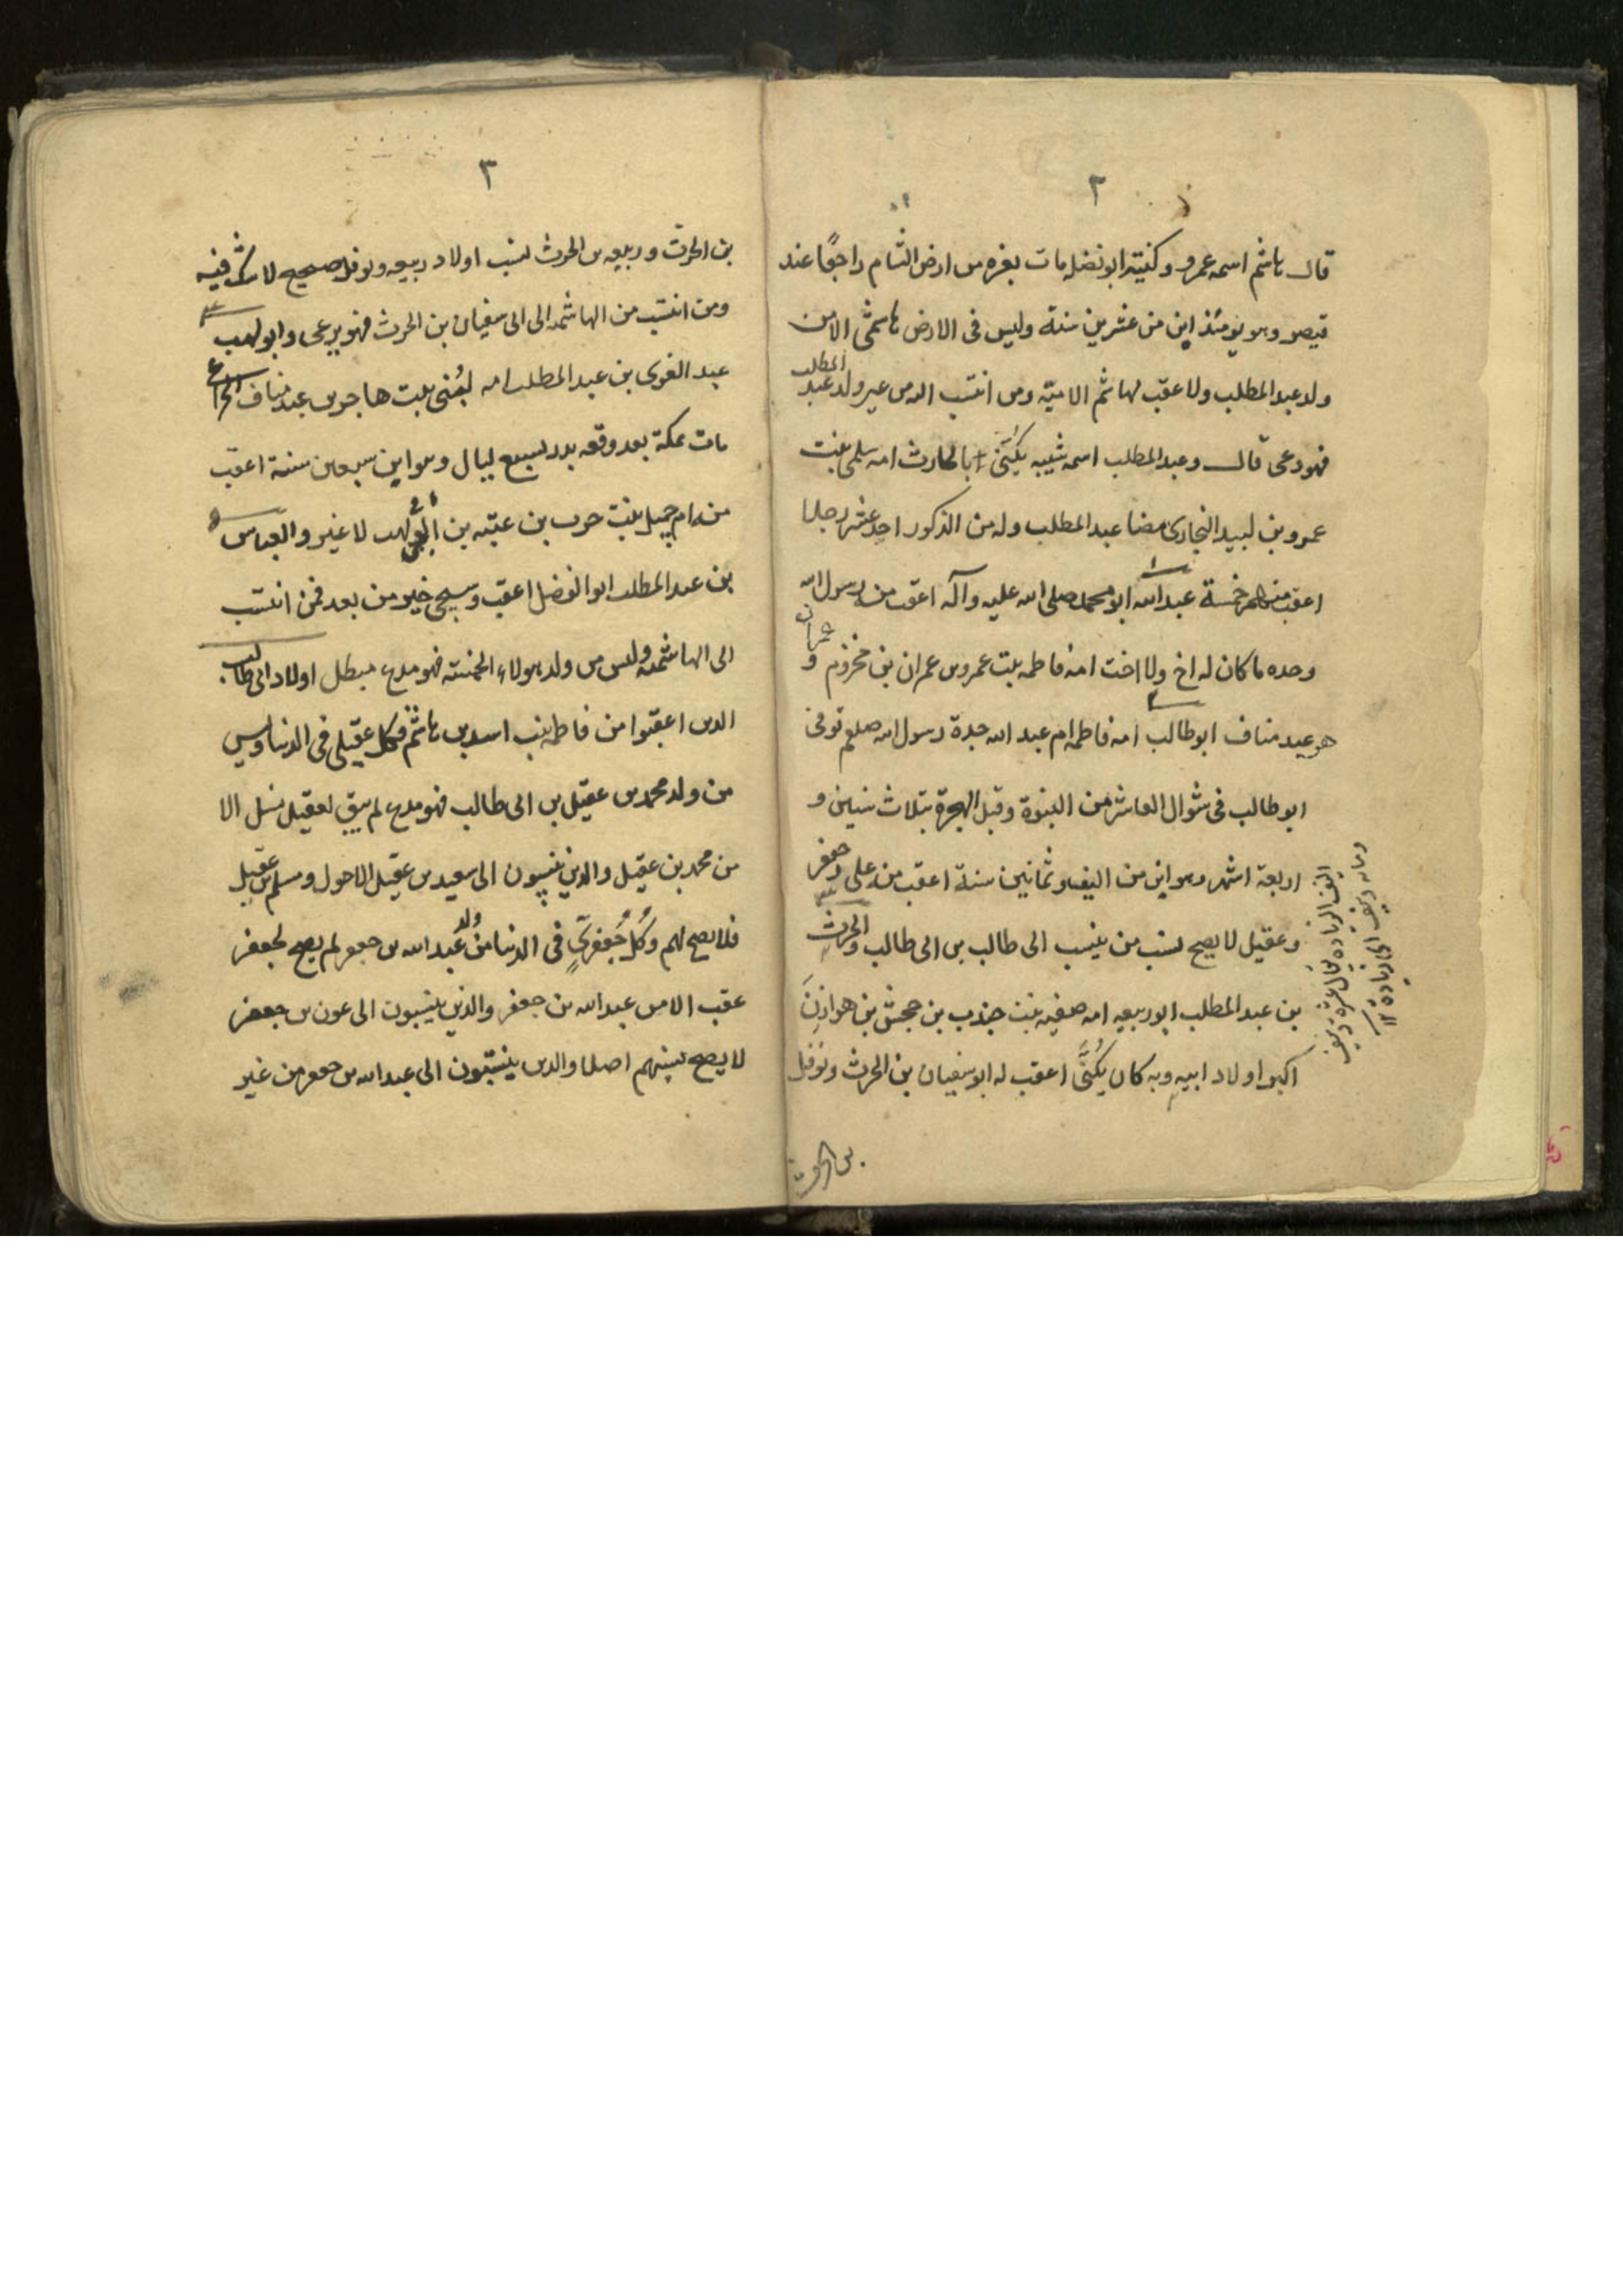 ٢
قال هاشم اسمه عمرو وكنيته ابو نضله مات بغزه من ارض الشام راجعًا عند
قيصر وهو يومئذ ابن من عشرين سنة وليس فى الارض هاشمى الا من
ولد عبد المطلب ولا عقب لهاشم الا منه ومن انتسب اليه من غير ولد عبد المطلب
فهو دعى قال وعبد المطلب اسمه شيبه يُكنى ابا الحارث امه سلمى بنت
عمرو بن لبيد النجارى مضا عبد المطلب وله من الذكور احد عشر رجلا
اعقب منهم خمسة عبد الله ابو محمد صلى الله عليه وآله اعقب منه رسول الله
وحده ما كان له اخ ولا اخت امه فاطمه بنت عمرو بن عمران بن مخزوم و
عمران
هو عبد مناف ابو طالب امه فاطمه ام عبد الله جدة رسول الله صلعم توفى
ابو طالب فى شوال العاشر من النبوة وقبل الهجرة بثلاث سنين و
اربعة اشهر وهو ابن من النيف وثمانين سنة اعقب من على وجعفر
وعقيل لا يصح نسب من ينسب الى طالب بن ابى طالب والحرث
بن عبد المطلب ابو ربيعه امه صفيه بنت جندب بن حجش بن هوازن
اكبر اولاد ابيه وبه كان يُكنّى اعقب له ابو سفيان بن الحرث ونوفل
النيف الزياده يقال عشرة ونيف
ومايه ونيف اى زيادة ١٢
بن الحرث
٣
بن الحرث وربيعه بن الحرث نسب اولاد ربيعه ونوفل صحيح لا شك فيه
ومن انتسب من الهاشميه الى ابى سفيان بن الحرث فهو دعى وابو لهب
عبد العزى بن عبد المطلب امه لبنى بنت هاجر بن عبد مناف الخزاعى
مات بمكة بعد وقعه بدر بسبع ليال وهو ابن سبعين سنة اعقب
من ام جميل بنت حرب بن عتبه بن ابى لهب لا غير والعباس
بن عبد المطلب ابو الفضل اعقب وسيجئ خبر من بعد فمن انتسب
الى الهاشميه وليس من ولد هولاء الخمسة فهو مدع مبطل اولاد ابى طالب
الذين اعقبوا من فاطمه بنت اسد بن هاشم فكل عقيلى فى الدنيا وليس
من ولد محمد بن عقيل بن ابى طالب فهو مدع لم يبق لعقيل نسل الا
من محمد بن عقيل والذين ينسبون الى سعيد بن عقيل الاحول ومسلم بن عقيل
فلا يصح لهم وكُلُّ جُعفرىٍّ فى الدنيا من ولد عبد الله بن جعفر لم يصح لجعفر
عقب الا من عبد الله بن جعفر والذين ينسبون الى عون بن جعفر
لا يصح نسبهم اصلا والذين ينتسبون الى عبد الله بن جعفر من غير